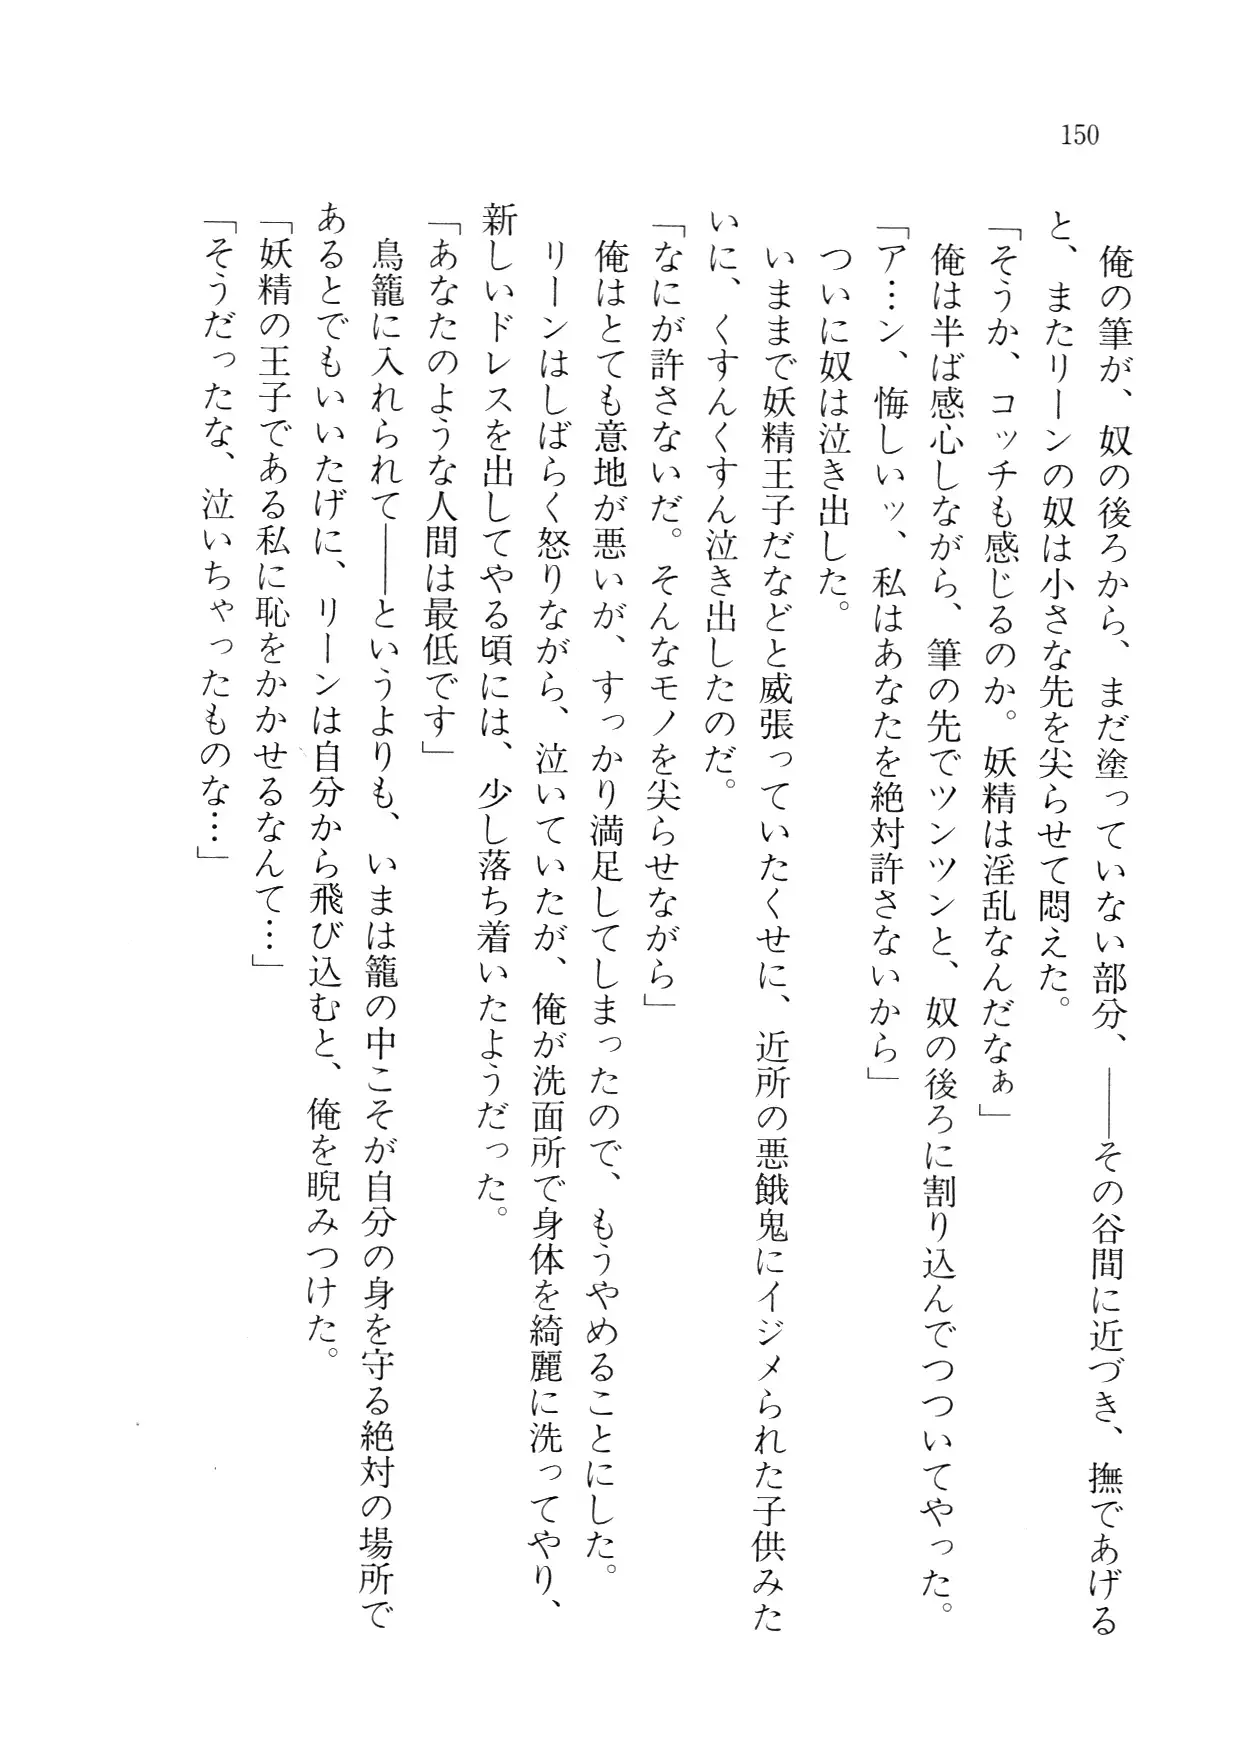 150
俺の筆が、奴の後ろから、まだ塗っていない部分、――その谷間に近づき、撫であげる
と、またリーンの奴は小さな先を尖らせて悶えた。
「そうか、コッチも感じるのか。妖精は淫乱なんだなぁ」
俺は半ば感心しながら、筆の先でツンツンと、奴の後ろに割り込んでつついてやった。
「ア…ン、悔しいッ、私はあなたを絶対許さないから」
ついに奴は泣き出した。
いままで妖精王子だなどと威張っていたくせに、近所の悪餓鬼にイジメられた子供みた
いに、くすんくすん泣き出したのだ。
「なにが許さないだ。そんなモノを尖らせながら」
俺はとても意地が悪いが、すっかり満足してしまったので、もうやめることにした。
リーンはしばらく怒りながら、泣いていたが、俺が洗面所で身体を綺麗に洗ってやり、
新しいドレスを出してやる頃には、少し落ち着いたようだった。
「あなたのような人間は最低です」
鳥籠に入れられて――というよりも、いまは籠の中こそが自分の身を守る絶対の場所で
あるとでもいいたげに、リーンは自分から飛び込むと、俺を睨みつけた。
「妖精の王子である私に恥をかかせるなんて…」
「そうだったな、泣いちゃったものな…」